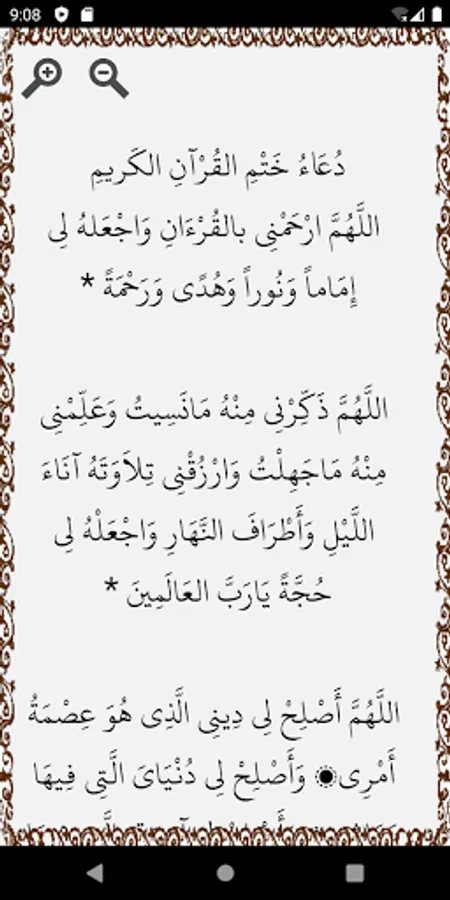 9:08
دُعَاءُ خَتْمِ القُرْآنِ الكَرِيمِ
اللَّهُمَّ ارْحَمْنِى بالقُرْءَانِ وَاجْعَلهُ لِى
إِمَاماً وَنُوراً وَهُدًى وَرَحْمَةً *
اللَّهُمَّ ذَكِّرْنِى مِنْهُ مَانَسِيتُ وَعَلِّمْنِى
مِنْهُ مَاجَهِلْتُ وَارْزُقْنِى تِلاَوَتَهُ آنَاءَ
اللَّيْلِ وَأَطْرَافَ النَّهَارِ وَاجْعَلْهُ لِى
حُجَّةً يَارَبَّ العَالَمِينَ *
اللَّهُمَّ أَصْلِحْ لِى دِينِى الَّذِى هُوَ عِصْمَةُ
أَمْرِى۝ وَأَصْلِحْ لِى دُنْيَاىَ الَّتِى فِيهَا